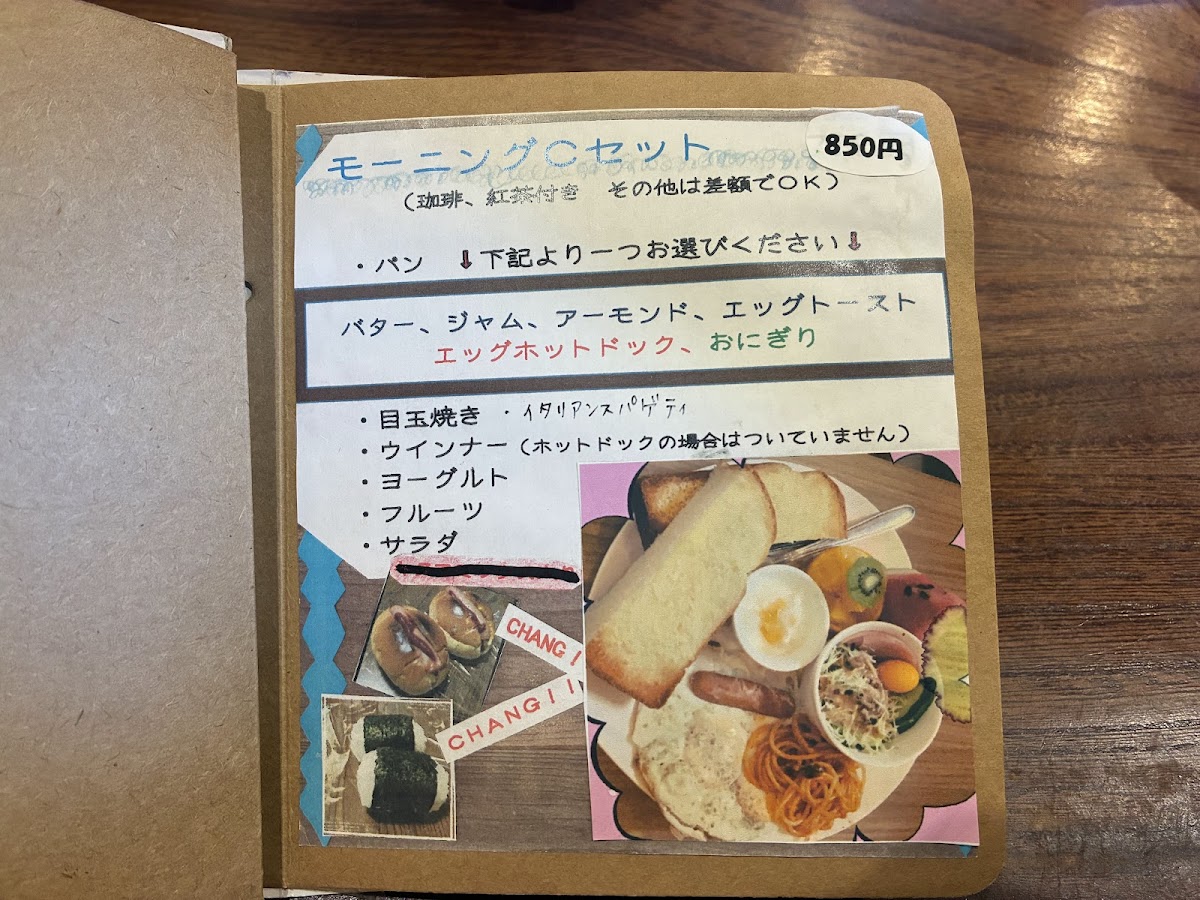 モーニングCセット
850円
(珈琲、紅茶付き その他は差額でOK)
・パン ↓下記より一つお選びください↓
バター、ジャム、アーモンド、エッグトースト
エッグホットドック、おにぎり
・目玉焼き ・イタリアンスパゲティ
・ウインナー(ホットドックの場合はついていません)
・ヨーグルト
・フルーツ
・サラダ
CHANG!
CHANG!!